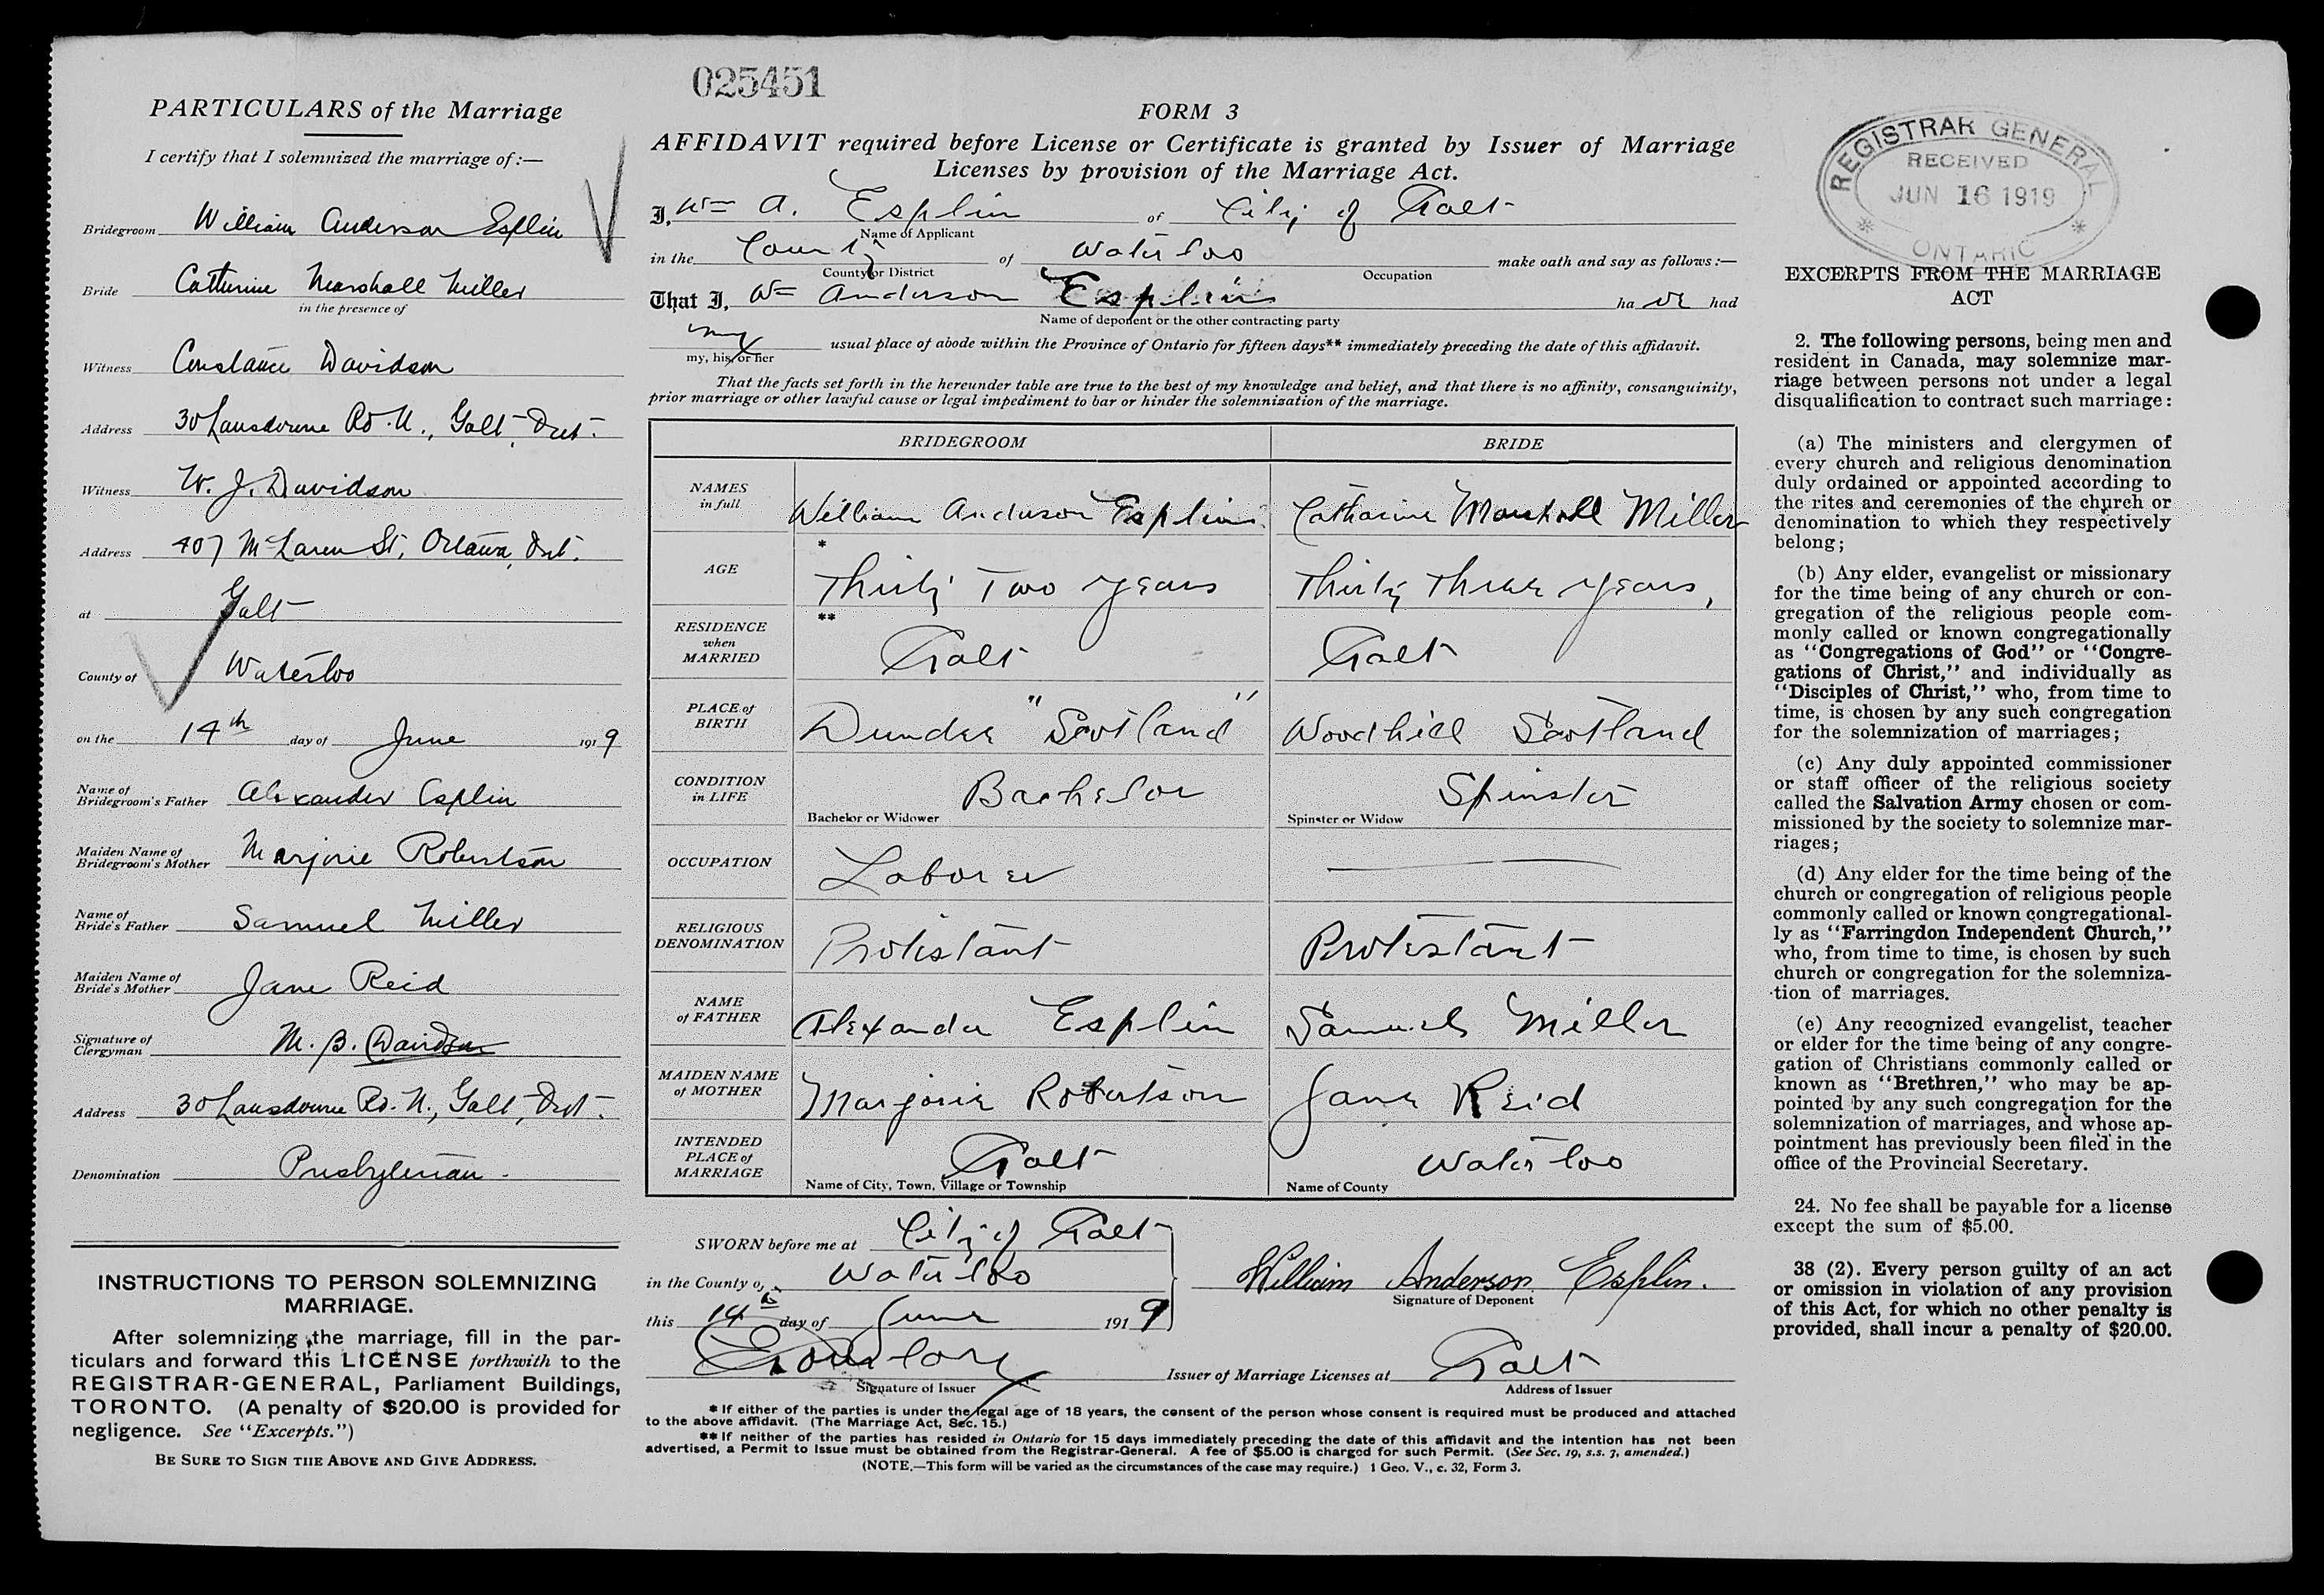 025451
PARTICULARS of the Marriage
I certify that I solemnized the marriage of:—
Bridegroom William Anderson Esplin
Bride Catherine Marshall Miller
in the presence of
Witness Constance Davidson
Address 30 Lansdowne Rd. N., Galt, Ont.
Witness W. J. Davidson
Address 407 McLaren St, Ottawa, Ont.
at Galt
County of Waterloo
on the 14th day of June 1919
Name of Bridegroom's Father Alexander Esplin
Maiden Name of Bridegroom's Mother Marjorie Robertson
Name of Bride's Father Samuel Miller
Maiden Name of Bride's Mother Jane Reid
Signature of Clergyman M. B. Davidson
Address 30 Lansdowne Rd. N., Galt, Ont.
Denomination Presbyterian.
INSTRUCTIONS TO PERSON SOLEMNIZING
MARRIAGE.
After solemnizing the marriage, fill in the par-
ticulars and forward this LICENSE forthwith to the
REGISTRAR-GENERAL, Parliament Buildings,
TORONTO. (A penalty of $20.00 is provided for
negligence. See "Excerpts.")
BE SURE TO SIGN THE ABOVE AND GIVE ADDRESS.
FORM 3
AFFIDAVIT required before License or Certificate is granted by Issuer of Marriage
Licenses by provision of the Marriage Act.
I, Wm A. Esplin of City of Galt
Name of Applicant
in the County of Waterloo make oath and say as follows:—
County or District Occupation
That I, Wm Anderson Esplin ha ve had
Name of deponent or the other contracting party
my usual place of abode within the Province of Ontario for fifteen days** immediately preceding the date of this affidavit.
my, his, or her
That the facts set forth in the hereunder table are true to the best of my knowledge and belief, and that there is no affinity, consanguinity,
prior marriage or other lawful cause or legal impediment to bar or hinder the solemnization of the marriage.
BRIDEGROOM BRIDE
NAMES in full William Anderson Esplin Catharine Marshall Miller
AGE * Thirty Two years Thirty Three years,
RESIDENCE when MARRIED ** Galt Galt
PLACE of BIRTH Dundee "Scotland" Woodhill Scotland
CONDITION in LIFE Bachelor Spinster
Bachelor or Widower Spinster or Widow
OCCUPATION Laborer —
RELIGIOUS DENOMINATION Protestant Protestant
NAME of FATHER Alexander Esplin Samuel Miller
MAIDEN NAME of MOTHER Marjorie Robertson Jane Reid
INTENDED PLACE of MARRIAGE Galt Waterloo
Name of City, Town, Village or Township Name of County
SWORN before me at City of Galt
in the County of Waterloo
William Anderson Esplin.
Signature of Deponent
this 14th day of June 1919
Issuer of Marriage Licenses at Galt
Signature of Issuer Address of Issuer
* If either of the parties is under the legal age of 18 years, the consent of the person whose consent is required must be produced and attached
to the above affidavit. (The Marriage Act, Sec. 15.)
** If neither of the parties has resided in Ontario for 15 days immediately preceding the date of this affidavit and the intention has not been
advertised, a Permit to Issue must be obtained from the Registrar-General. A fee of $5.00 is charged for such Permit. (See Sec. 19, s.s. 3, amended.)
(NOTE.—This form will be varied as the circumstances of the case may require.) 1 Geo. V., c. 32, Form 3.
REGISTRAR GENERAL
RECEIVED
JUN 16 1919
* *
ONTARIO
EXCERPTS FROM THE MARRIAGE
ACT
2. The following persons, being men and
resident in Canada, may solemnize mar-
riage between persons not under a legal
disqualification to contract such marriage:
(a) The ministers and clergymen of
every church and religious denomination
duly ordained or appointed according to
the rites and ceremonies of the church or
denomination to which they respectively
belong;
(b) Any elder, evangelist or missionary
for the time being of any church or con-
gregation of the religious people com-
monly called or known congregationally
as "Congregations of God" or "Congre-
gations of Christ," and individually as
"Disciples of Christ," who, from time to
time, is chosen by any such congregation
for the solemnization of marriages;
(c) Any duly appointed commissioner
or staff officer of the religious society
called the Salvation Army chosen or com-
missioned by the society to solemnize mar-
riages;
(d) Any elder for the time being of the
church or congregation of religious people
commonly called or known congregational-
ly as "Farringdon Independent Church,"
who, from time to time, is chosen by such
church or congregation for the solemniza-
tion of marriages.
(e) Any recognized evangelist, teacher
or elder for the time being of any congre-
gation of Christians commonly called or
known as "Brethren," who may be ap-
pointed by any such congregation for the
solemnization of marriages, and whose ap-
pointment has previously been filed in the
office of the Provincial Secretary.
24. No fee shall be payable for a license
except the sum of $5.00.
38 (2). Every person guilty of an act
or omission in violation of any provision
of this Act, for which no other penalty is
provided, shall incur a penalty of $20.00.